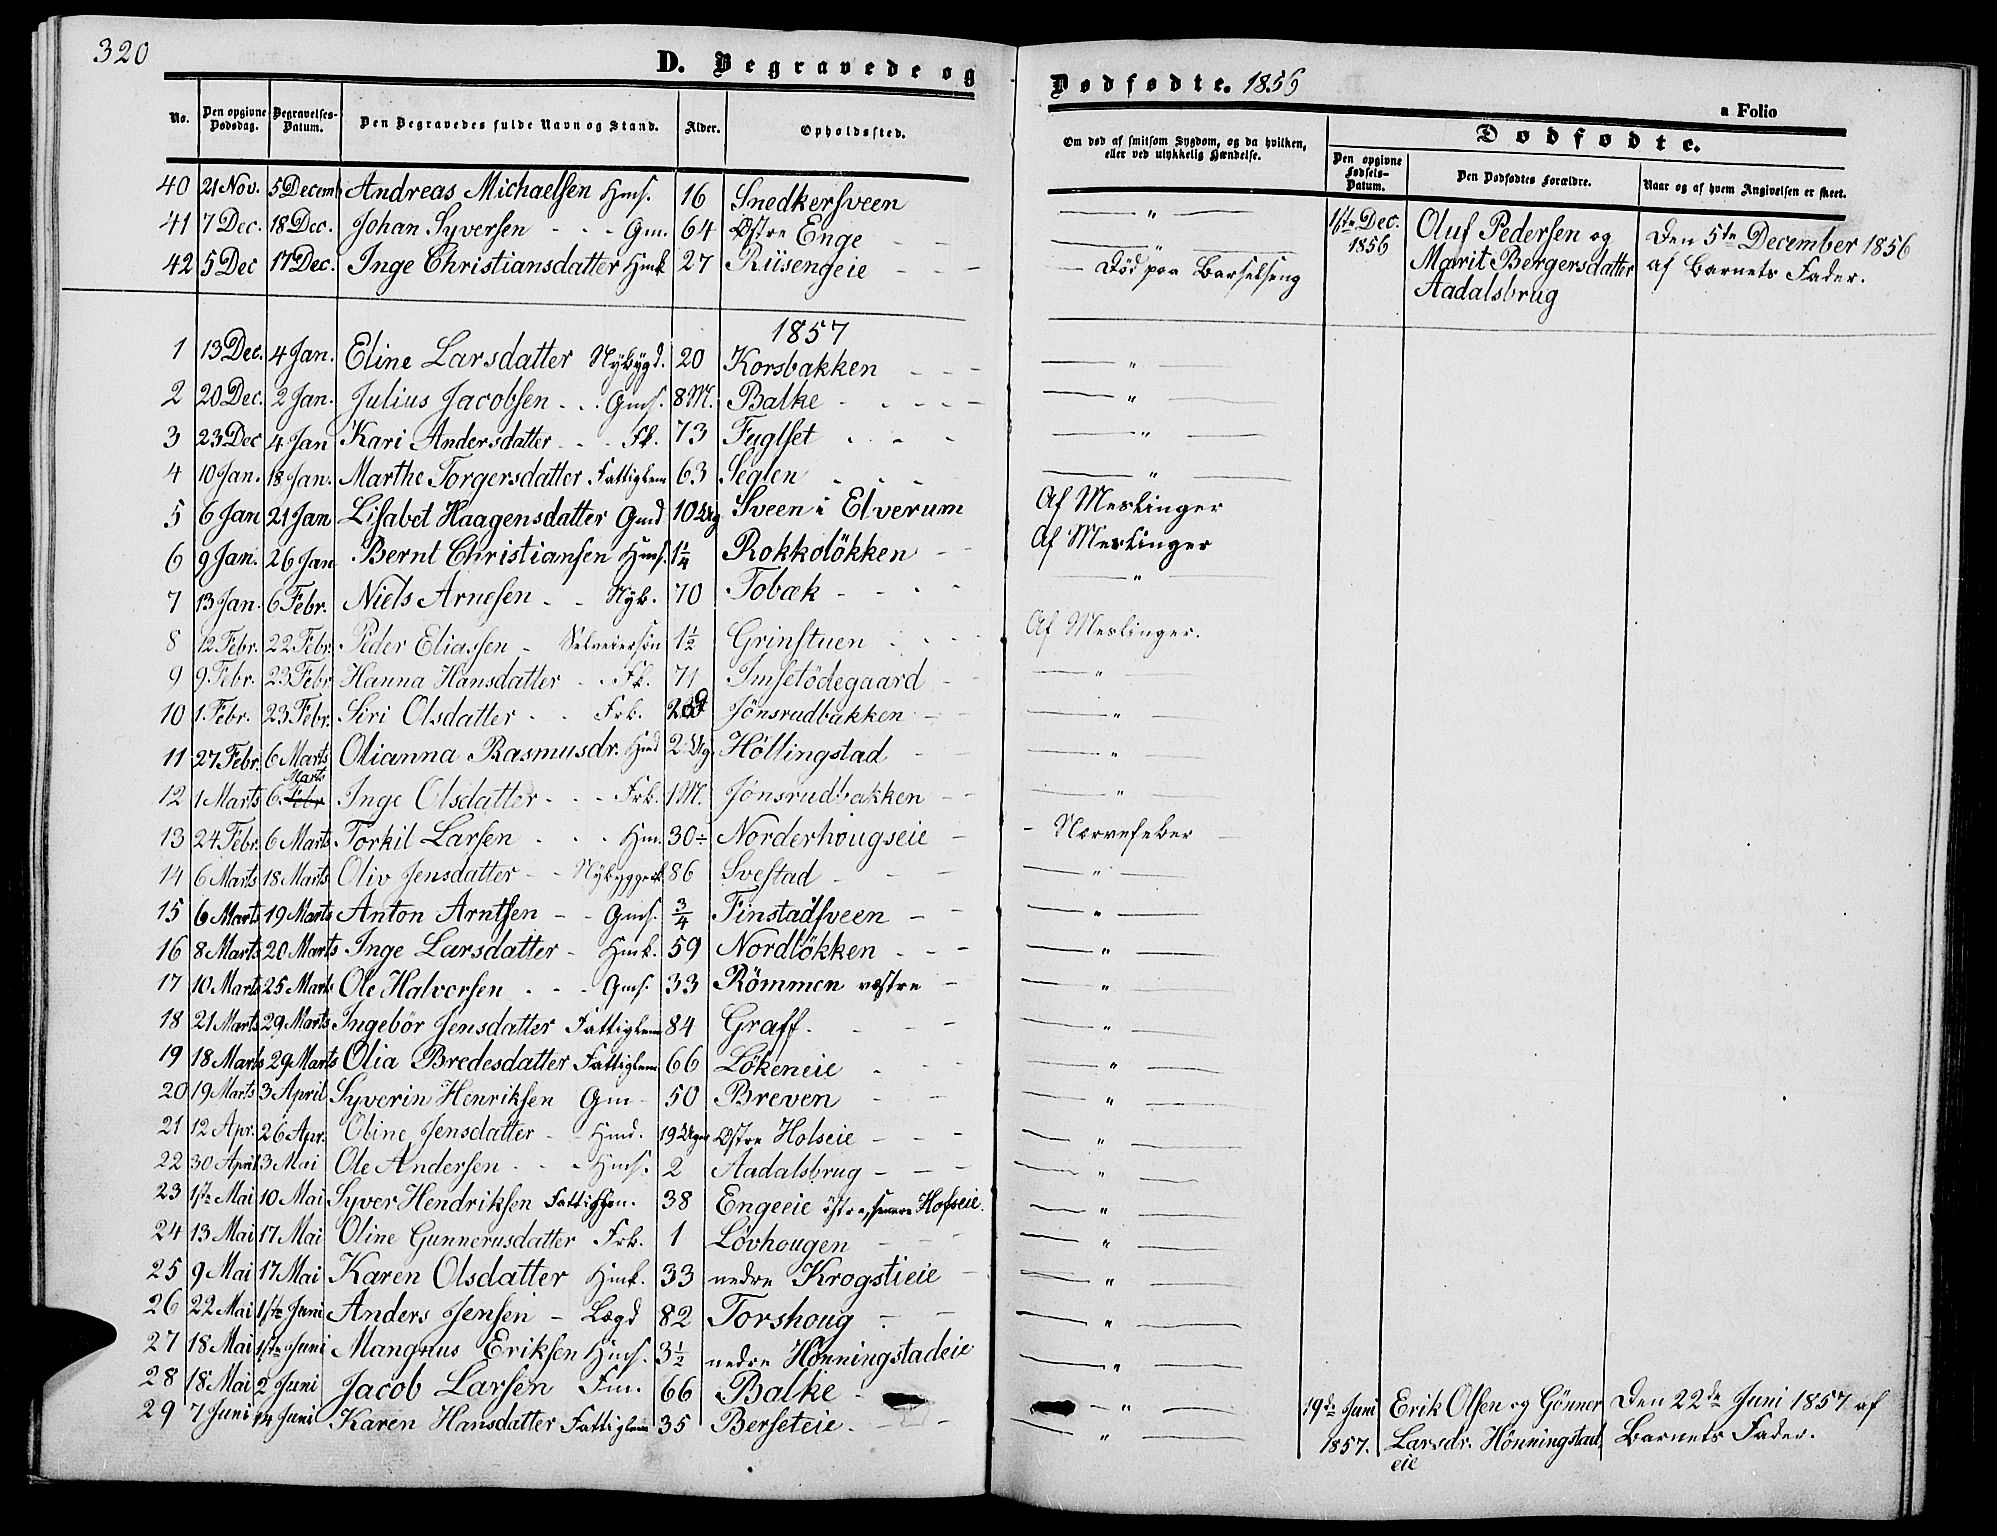 320
D. Begravede og
Dødfødte. 1856
a Folio
No. Den opgivne Dødsdag. Begravelses-Datum. Den Begravedes fulde Navn og Stand. Alder. Opholdssted.
Om død af smitsom Sygdom, og da hvilken, eller ved ulykkelig Hændelse.
Dødfødte.
Den opgivne Fødsels-Datum. Den Dødfødtes Forældre. Naar og af hvem Angivelsen er skeet.
40 21 Nov. 5 Decemb Andreas Michaelsen Hms. 16 Snedkersveen — " —
41 7 Dec. 18 Dec. Johan Syversen - - - Gm. 64 Østre Enge — " —
42 5 Dec 17 Dec. Inge Christiansdatter Hmk 27 Riisengeie — Død paa Barselseng
1ste Dec. 1856 Oluf Pedersen og Den 5te December 1856
Marit Bergersdatter af Barnets Fader.
Aadalsbrug
1857
1 13 Dec. 4 Jan. Eline Larsdatter Nybygd. 20 Korsbakken — " —
2 20 Dec. 2 Jan. Julius Jacobsen - - - Gms. 8 M. Balke — " —
3 23 Dec 4 Jan Kari Andersdatter - - Fk. 73 Fuglset — " —
4 10 Jan. 18 Jan. Marthe Torgersdatter Fattiglem 63 Seglen — " —
5 6 Jan 21 Jan Lisabet Haagensdatter Gmd 10 Ug Sveen i Elverum Af Meslinger
6 9 Jan. 26 Jan Bernt Christiansen Hms. 1 1/4 Rokkoløkken Af Meslinger
7 13 Jan. 6 Febr. Niels Arnesen - - Nyb. 70 Tobæk — " —
8 12 Febr. 22 Febr. Peder Eliassen - Selveiersön 1 1/2 Grinstuen Af Meslinger.
9 9 Febr. 23 Febr Hanna Hansdatter - - Fk. 71 Imsetödegaard — " —
10 1. Febr. 23 Febr. Siri Olsdatter - - Frk. Jönsrudbakken — " —
11 27 Febr. 6 Marts Olianna Rasmusdr. Hmd 2 Ug. Höllingstad — " —
12 1 Marts 6 Febr Marts Inge Olsdatter - - - Frk. 1 M. Jönsrudbakken — " —
13 24 Febr. 6 Marts Torkil Larsen - - - Hm. 30 Norderhougseie - Nærvefeber —
14 6 Marts 18 Marts Oliv Jensdatter - - 86 Svestad — " —
15 6 Marts 19 Marts Anton Arntsen - - Gms. 3/4 Finstadsveen — " —
16 8 Marts 20 Marts Inge Larsdatter - Hmk. 59 Nordløkken — " —
17 10 Marts 25 Marts Ole Halvorsen - - - Gms. 33 Römmen vestre — " —
18 21 Marts 29 Marts Ingebör Jensdatter Fattiglem 84 Graff. — " —
19 18 Marts 29 Marts Olia Bredesdatter Fattiglem 66 Lökeneie — " —
20 19 Marts 3 April Syverin Henriksen Gm - 50 Breven — " —
21 12 Apr. 26 Apr. Oline Jensdatter - - Hmd. 19 Uger Østre Holseie — " —
22 30 April 3 Mai Ole Andersen - - - Hms. 2 Aadalsbrug — " —
23 1ste Mai 10 Mai Syver Hendriksen 38 Engeeie östre, senere Hofseie. — " —
24 13 Mai 17 Mai Oline Gunnerusdatter Frk. 1 Lövhougen — " —
25 9 Mai 17 Mai Karen Olsdatter Hmk. 33 nedre Krogstieie — " —
26 22 Mai 1ste Juni Anders Jensen - Lægd 82 Torshoug — " —
27 18 Mai 1ste Juni Mangnus Eriksen Hms. 3 1/2 nedre Hönningstadeie — " —
28 18 Mai 2 Juni Jacob Larsen Fm. 66 Balke — " —
29 7 Juni 14 Juni Karen Hansdatter Fattiglem 35 Berseteie. — " —
19de Juni 1857. Erik Olsen og Gönner Den 22de Juni 1857 af
Larsdr. Hönningstad Barnets Fader.
eie